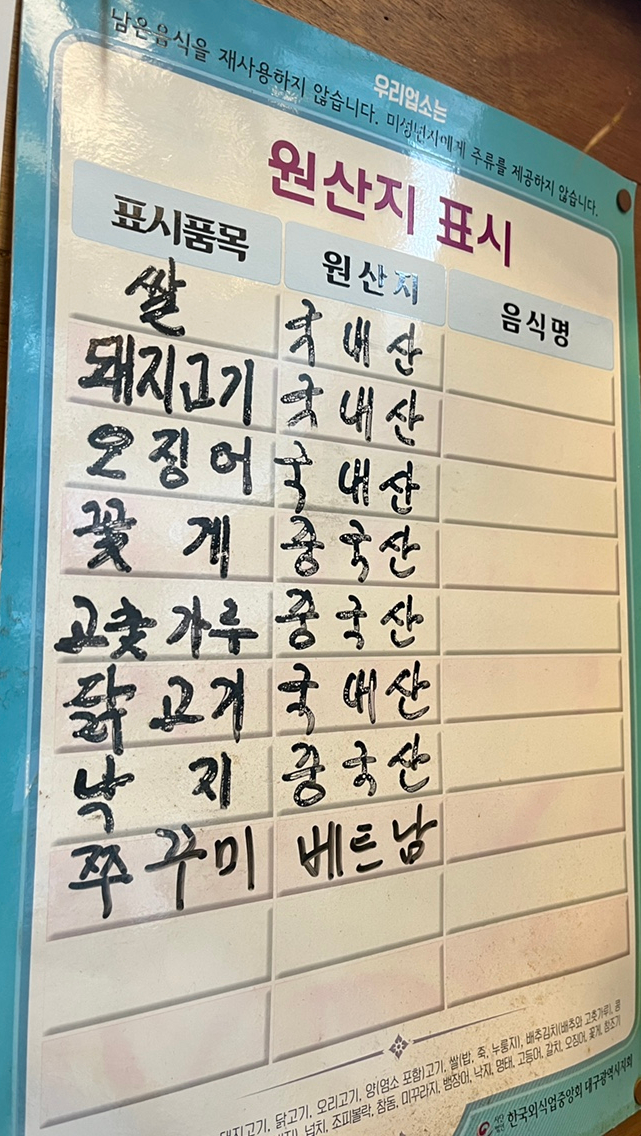 우리업소는
남은음식을 재사용하지 않습니다. 미성년자에게 주류를 제공하지 않습니다.
원산지 표시
표시품목 원산지 음식명
쌀 국내산
돼지고기 국내산
오징어 국내산
꽃게 중국산
고춧가루 중국산
닭고기 국내산
낙지 중국산
쭈꾸미 베트남
돼지고기, 닭고기, 오리고기, 양(염소 포함)고기, 쌀(밥, 죽, 누룽지), 배추김치(배추와 고춧가루), 콩
넙치, 조피볼락, 참돔, 미꾸라지, 뱀장어, 낙지, 명태, 고등어, 갈치, 오징어, 꽃게, 참조기
사단법인 한국외식업중앙회 대구광역시지회